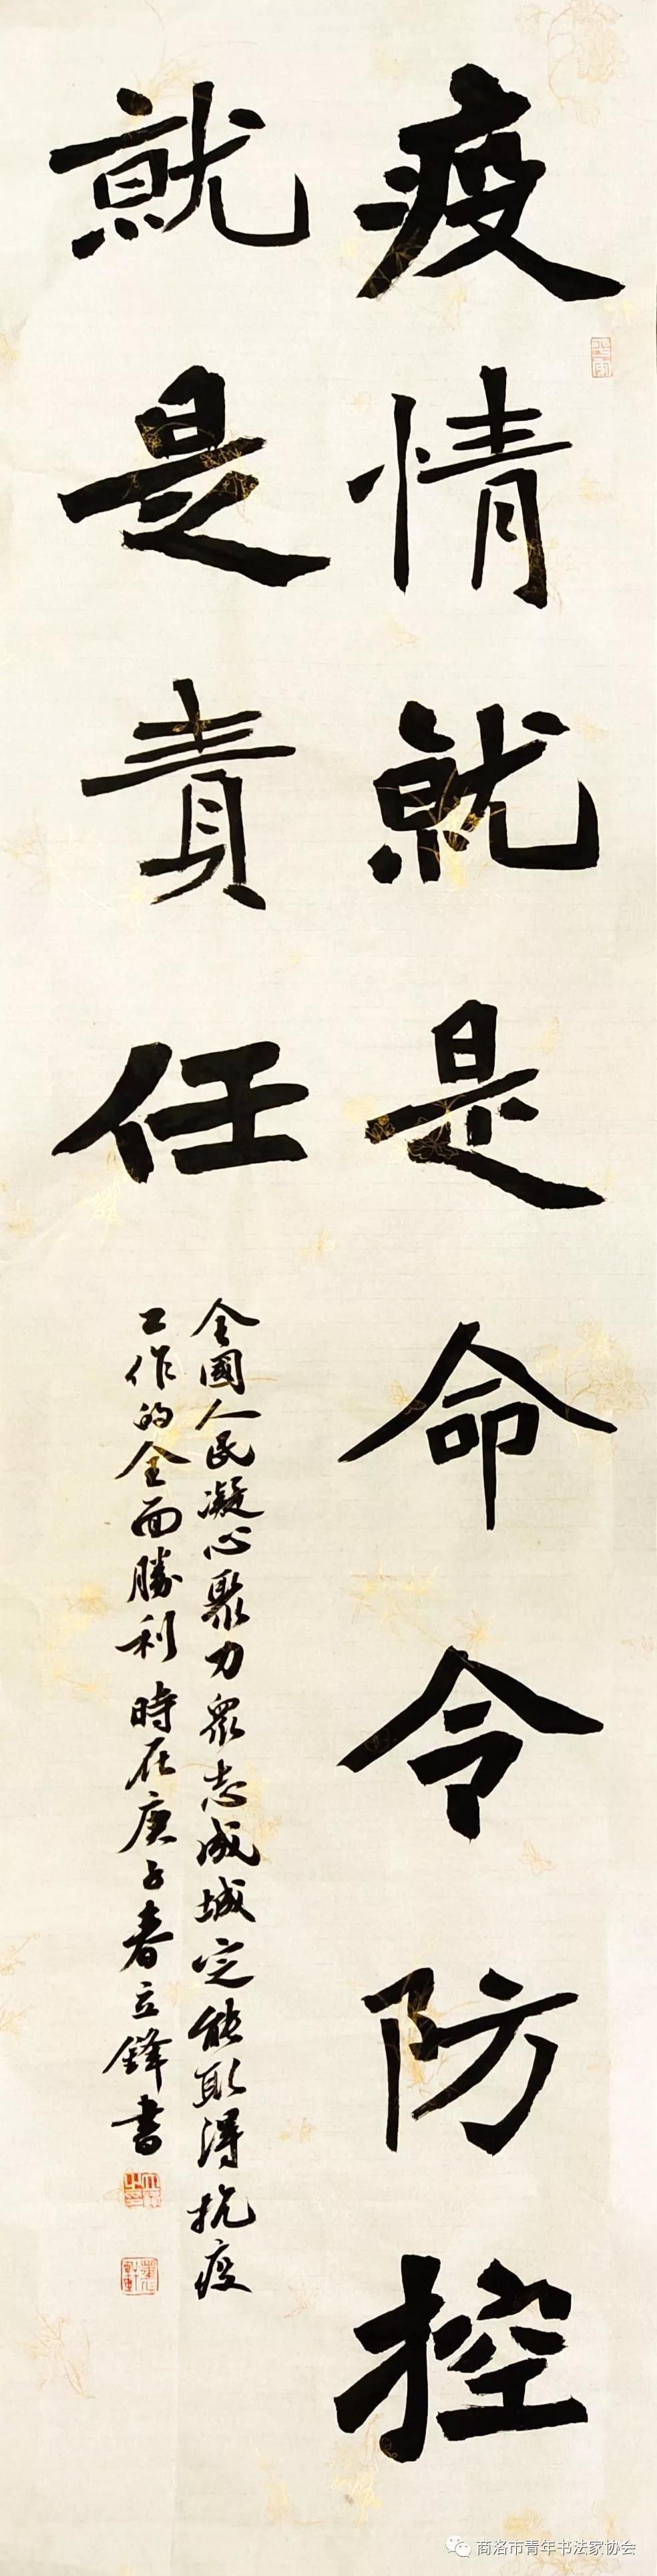 疫情就是命令防控
就是責任
全國人民凝心聚力衆志成城定能取得抗疫
工作的全面勝利時在庚子春立鋒書
商洛市青年书法家协会